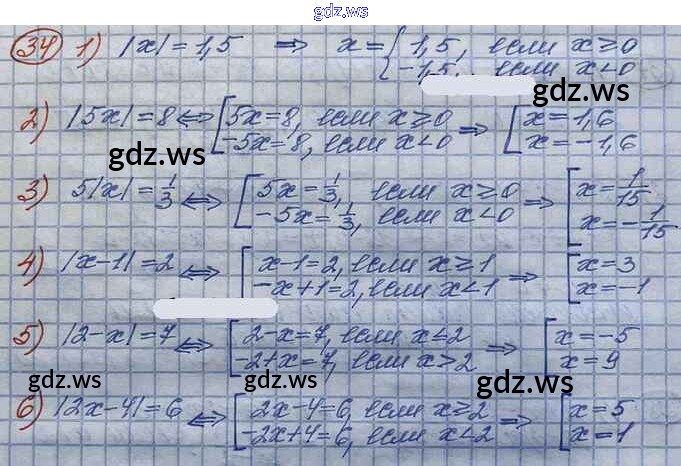 gdz.ws
34 1) |x| = 1,5 ⇒ x = { 1,5, если x ≥ 0
-1,5, если x < 0
gdz.ws
2) |5x| = 8 ⇔ [ 5x = 8, если x ≥ 0
-5x = 8, если x < 0 ⇒ [ x = 1,6
x = -1,6
gdz.ws
3) 5|x| = 1/3 ⇔ [ 5x = 1/3, если x ≥ 0
-5x = 1/3, если x < 0 ⇒ [ x = 1/15
x = -1/15
4) |x-1| = 2 ⇔ [ x-1 = 2, если x ≥ 1
-x+1 = 2, если x < 1 ⇒ [ x = 3
x = -1
5) |2-x| = 7 ⇔ [ 2-x = 7, если x ≤ 2
-2+x = 7, если x > 2 ⇒ [ x = -5
x = 9
gdz.ws gdz.ws gdz.ws
6) |2x-4| = 6 ⇔ [ 2x-4 = 6, если x ≥ 2
-2x+4 = 6, если x < 2 ⇒ [ x = 5
x = 1